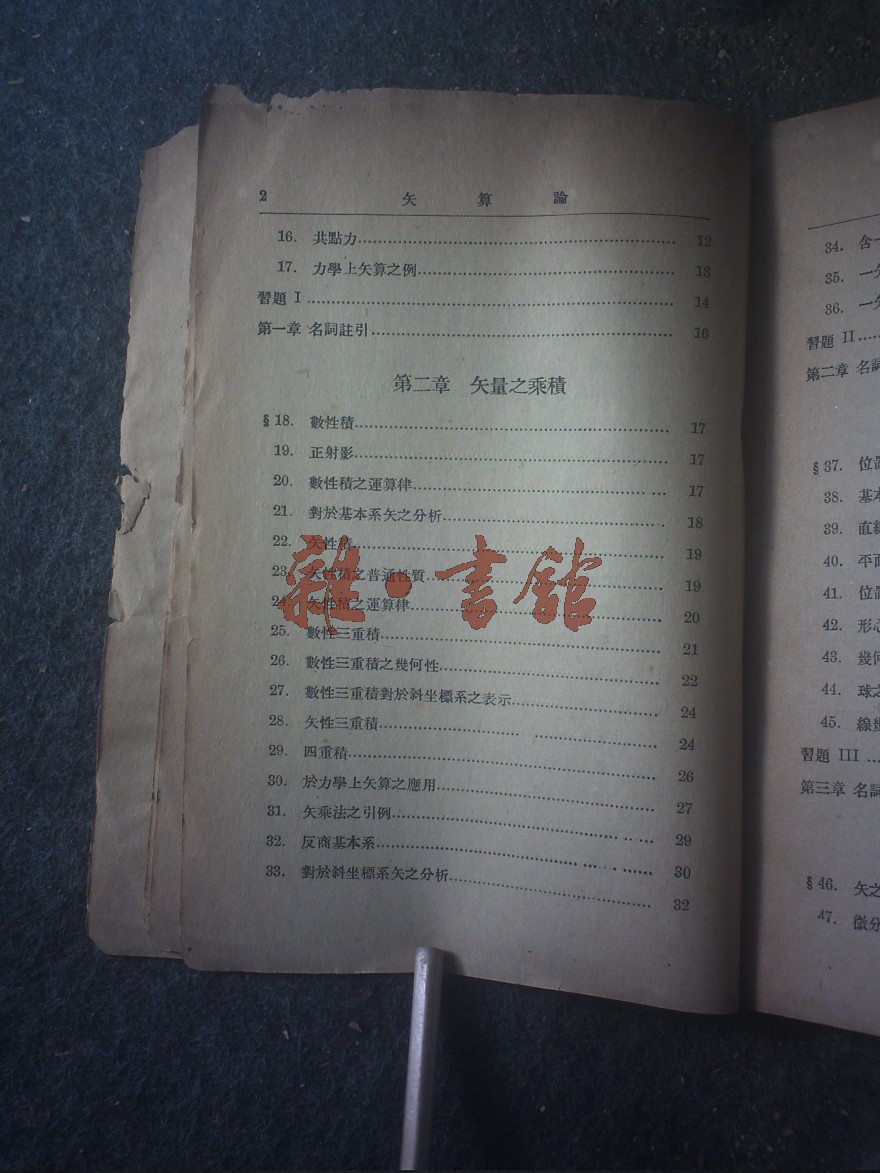 2 矢算論
16. 共點力 12
17. 力學上矢算之例 13
習題 I 14
第一章 名詞註引 16
第二章 矢量之乘積
§18. 數性積 17
19. 正射影 17
20. 數性積之運算律 17
21. 對於基本系矢之分析 18
22. 矢性積 19
23. 矢性積之普通性質 19
24. 矢性積之運算律 20
25. 數性三重積 21
26. 數性三重積之幾何性 22
27. 數性三重積對於斜坐標系之表示 24
28. 矢性三重積 24
29. 四重積 26
30. 於力學上矢算之應用 27
31. 矢乘法之引例 29
32. 反商基本系 30
33. 對於斜坐標系矢之分析 32
雜·書館
34. 含一
35. 一
36. 一
習題 II
第二章 名詞
§37. 位置
38. 基本
39. 直線
40. 平面
41. 位置
42. 形心
43. 幾何
44. 球之
45. 線
習題 III
第三章 名詞
§46. 矢之
47. 微分